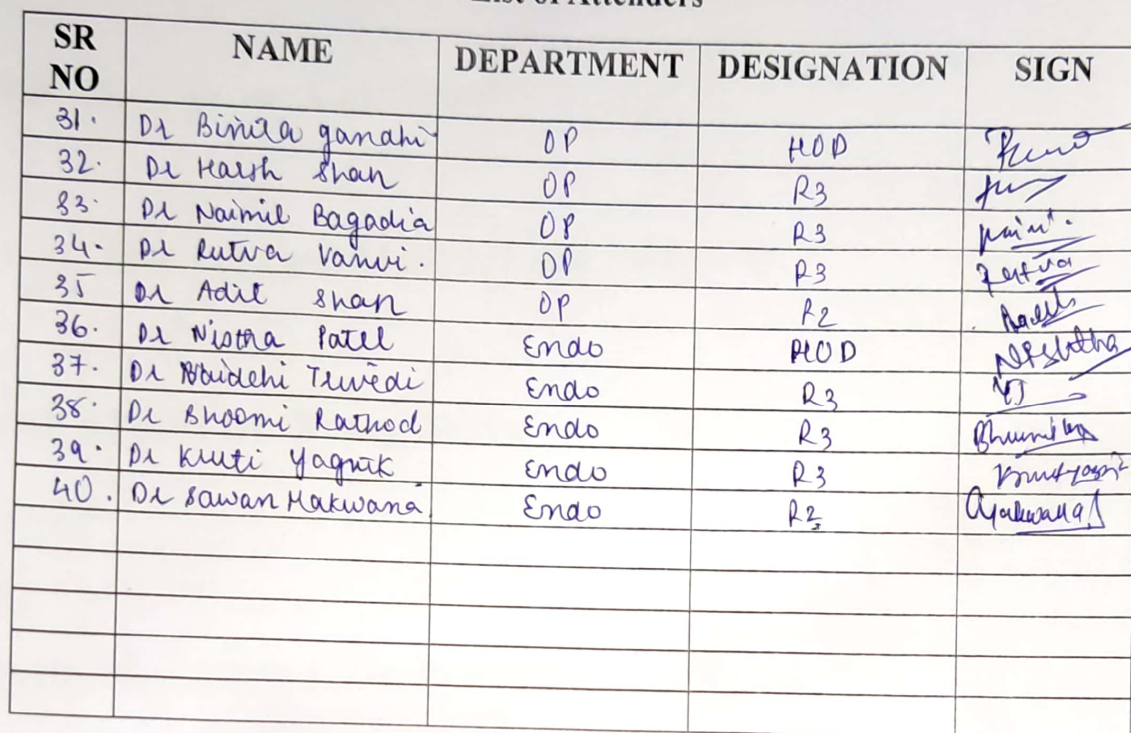 List of Attenders
SR NO NAME DEPARTMENT DESIGNATION SIGN
31. Dr Binita gandhi OP HOD
32. Dr Harsh Shah OP R3
33. Dr Naimil Bagadia OP R3
34. Dr Rutva Vanvi. OP R3 Rutva
35 Dr Adit Shah OP R2
36. Dr Nistha Patel Endo HOD
37. Dr Vaidehi Trivedi Endo R3 VJ
38. Dr Bhoomi Rathod Endo R3
39. Dr Kruti Yagnik Endo R3
40. Dr Sawan Makwana Endo R2